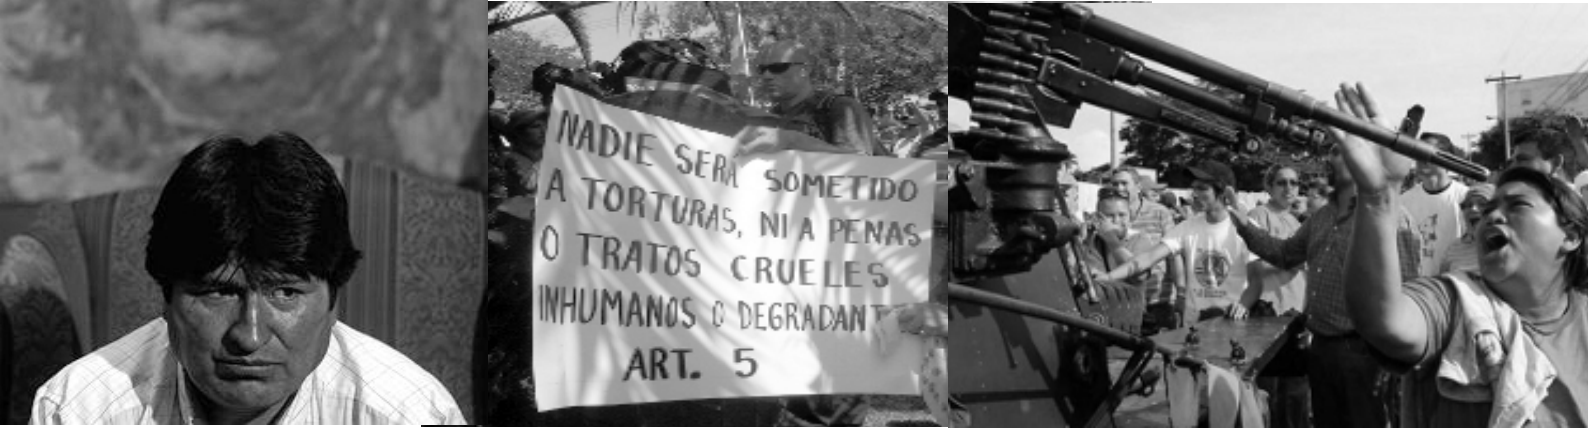 NADIE SERA SOMETIDO
A TORTURAS, NI A PENAS
O TRATOS CRUELES
INHUMANOS O DEGRADANT
ART. 5